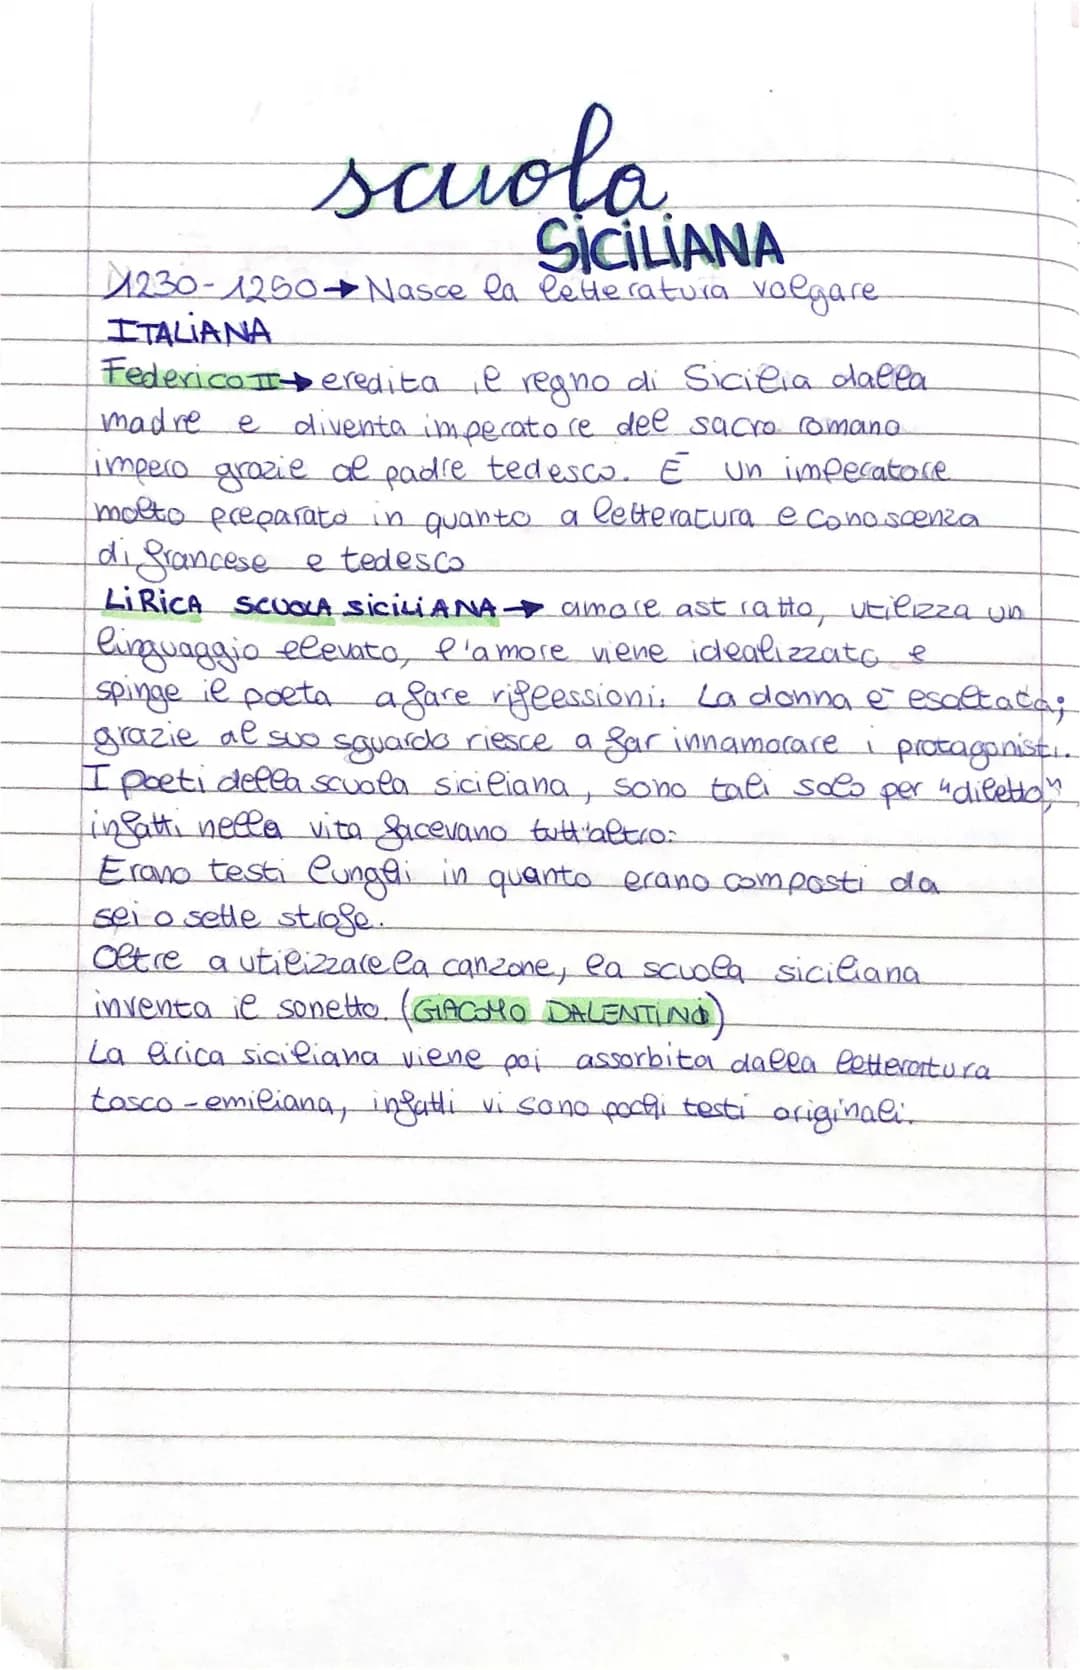 scuola
SICILIANA
1230-1250→Nasce la letteratura volgare
ITALIANA
Federico II→eredita il regno di Sicilia dalla
madre e diventa imperatore del sacro romano
impero grazie al padre tedesco. È un imperatore
molto preparato in quanto a letteratura e conoscenza
di francese e tedesco
LIRICA SCUOLA SICILIANA→ amore astratto, utilizza un
linguaggio elevato, l'amore viene idealizzato e
spinge il poeta a fare riflessioni. La donna è esaltata;
grazie al suo sguardo riesce a far innamorare i protagonisti.
I poeti della scuola siciliana, sono tali solo per "diletto",
infatti nella vita facevano tutt'altro.
Erano testi lunghi in quanto erano composti da
sei o sette strofe.
Oltre a utilizzare la canzone, la scuola siciliana
inventa il sonetto. (GIACOMO DALENTINO)
La lirica siciliana viene poi assorbita dalla letterortura
tosco-emiliana, infatti vi sono pochi testi originali.